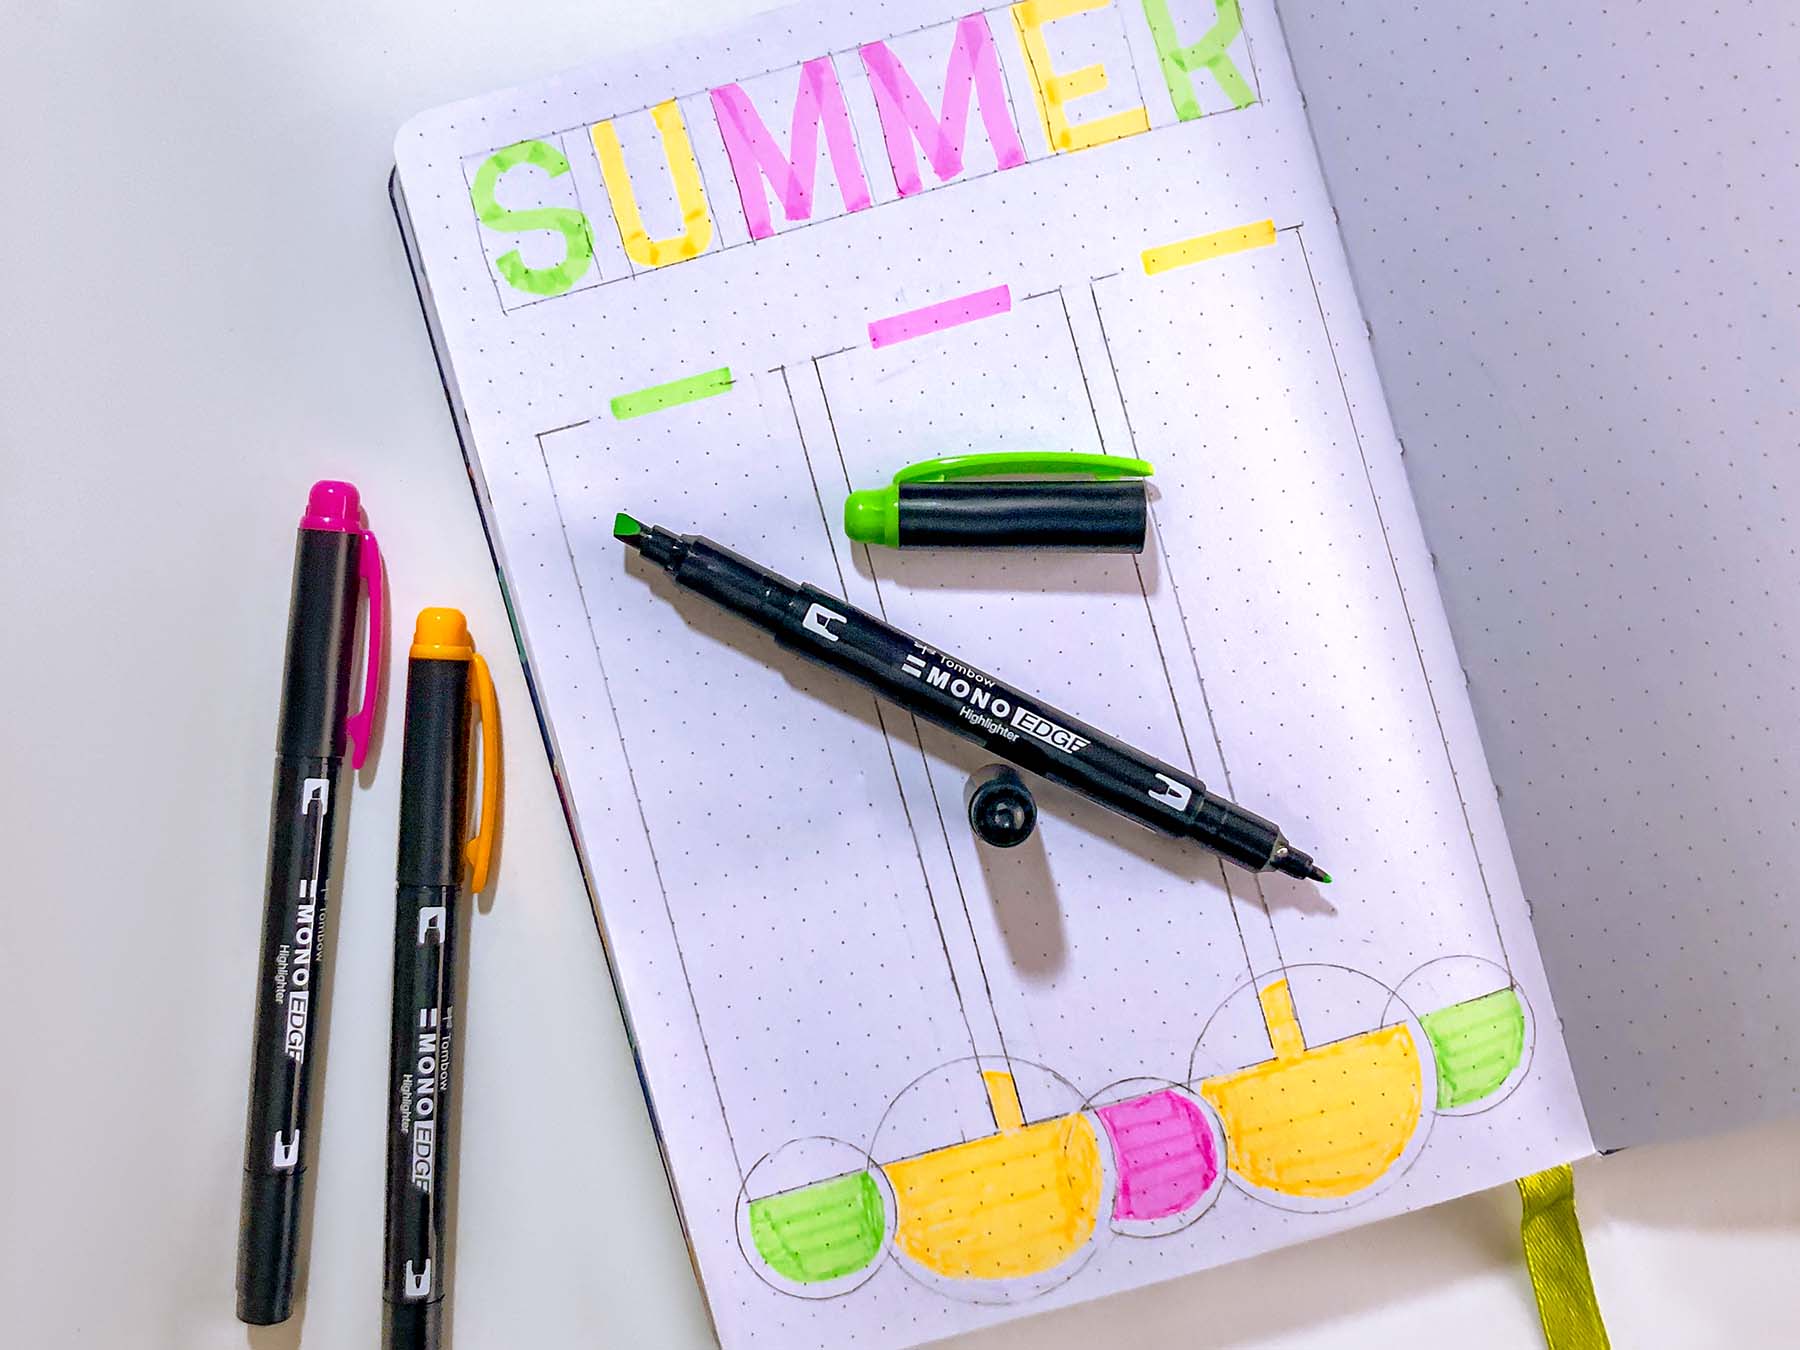 SUMMER
Tombow
MONO EDGE
Highlighter
Tombow
MONO EDGE
Highlighter
Tombow
MONO EDGE
Highlighter